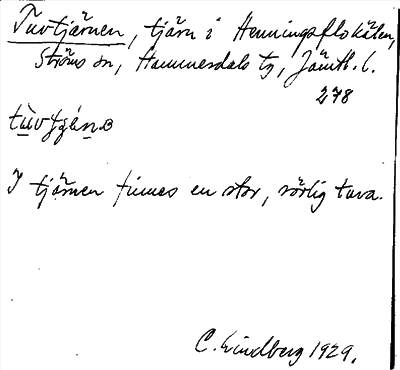 Tuvtjärnen, tjärn i Henningsflokälen,
Ströms sn, Hammerdals tg, Jämtl. l.
278
I tjärnen finnes en stor, rörlig tuva.
C. Lindberg 1929.